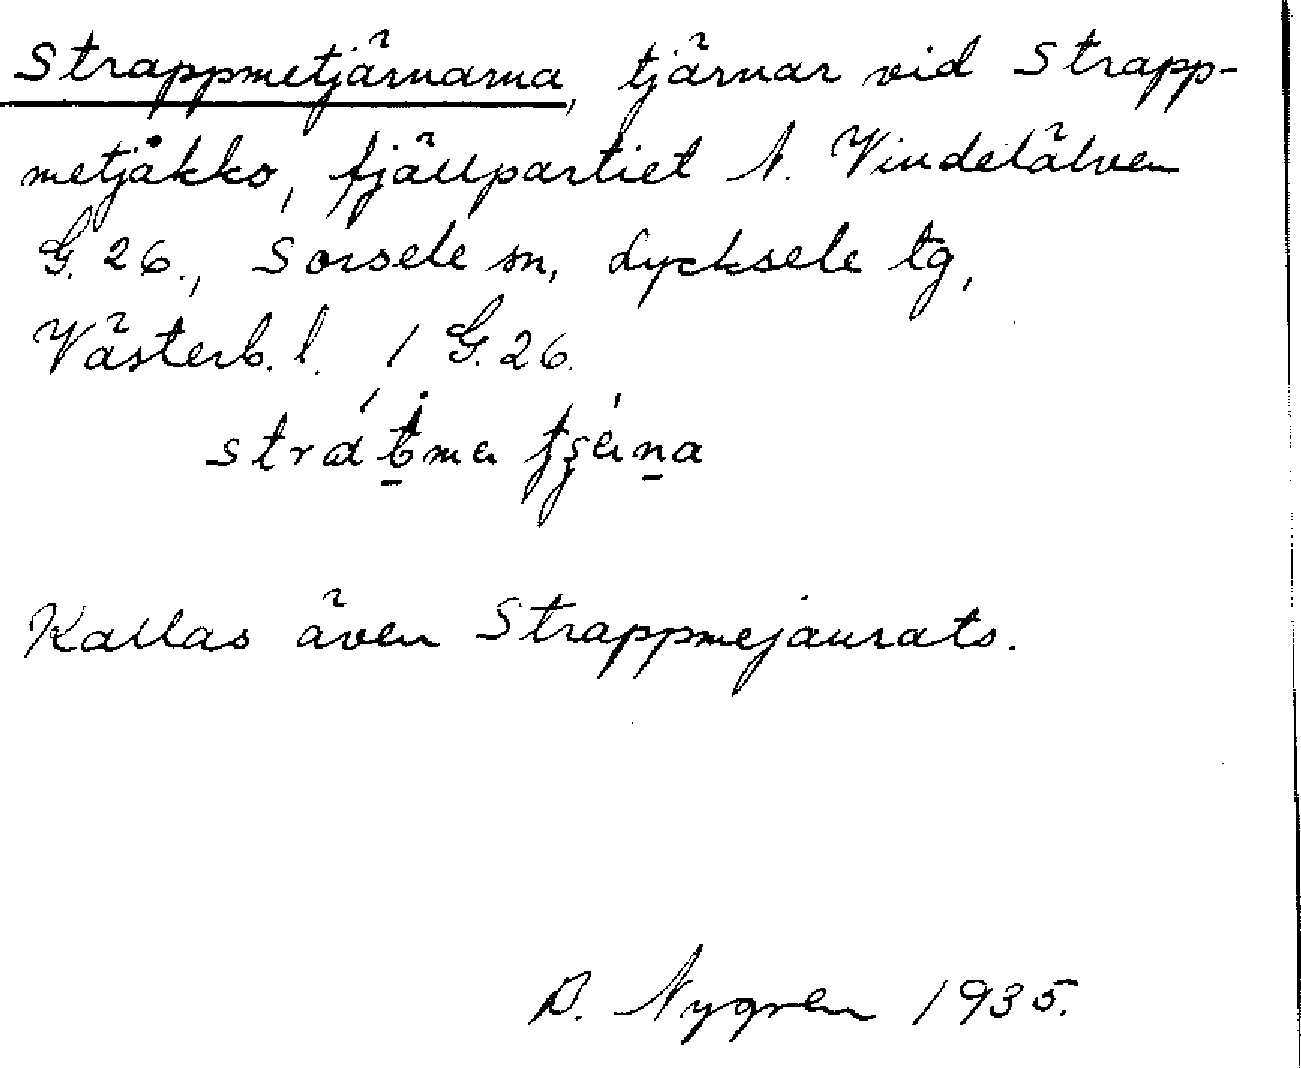 Strappmetjärnarna, tjärnar vid Strapp-
metjåkko, fjällpartiet N. Vindelälven
G. 26., Sorsele sn, Lycksele tg,
Västerb. l. / G. 26.
Kallas även Strappmejaurats.
Nygren 1935.